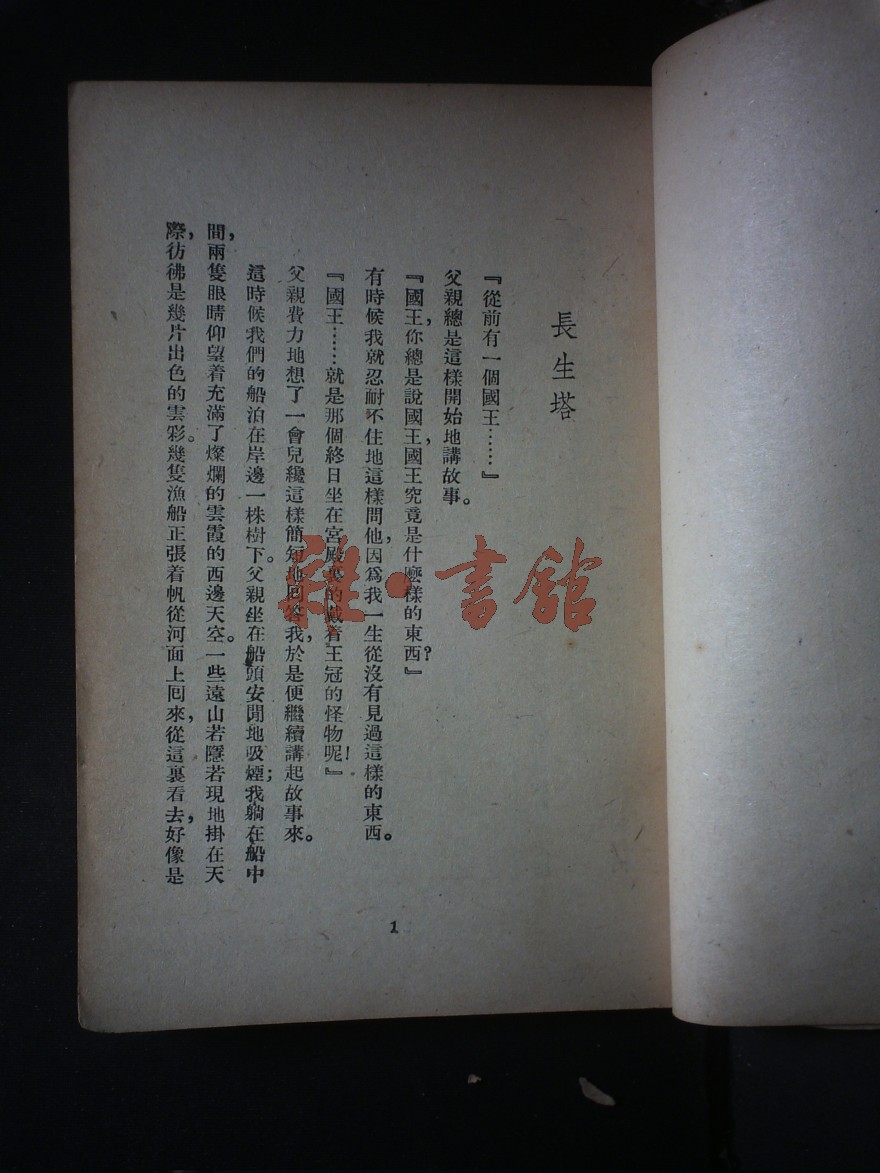 長生塔
『從前有一個國王……』
父親總是這樣開始地講故事。
『國王，你總是說國王，國王究竟是什麼樣的東西？』
有時候我就忍耐不住地這樣問他，因爲我一生從沒有見過這樣的東西。
『國王……就是那個終日坐在宮殿裏的戴着王冠的怪物呢！』
父親費力地想了一會兒纔這樣簡短地回答我，於是便繼續講起故事來。
這時候我們的船泊在岸邊一株樹下。父親坐在船頭安閒地吸煙；我躺在船中
間，兩隻眼睛仰望着充滿了燦爛的雲霞的西邊天空。一些遠山若隱若現地掛在天
際，彷彿是幾片出色的雲彩。幾隻漁船正張着帆從河面上囘來，從這裏看去，好像是
1
雜·書館